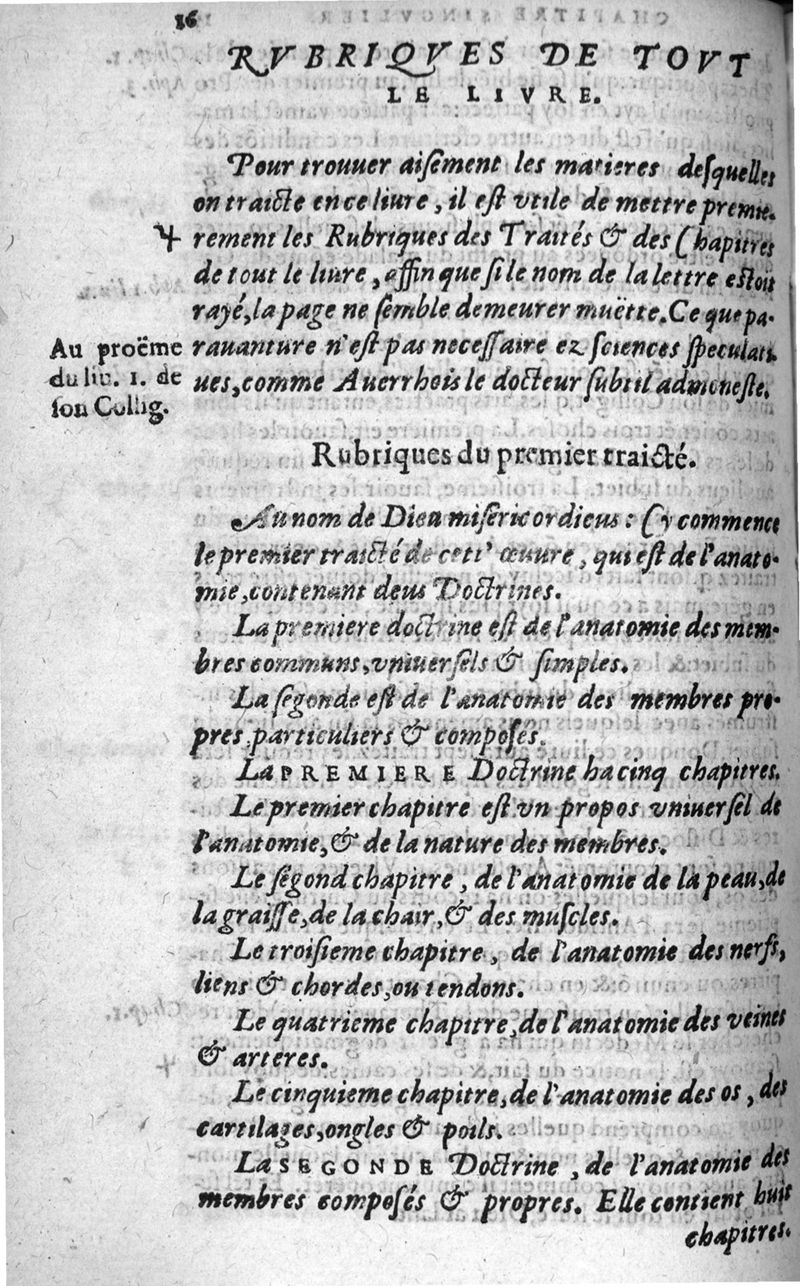 16
RVBRIQVES DE TOVT
LE LIVRE.
Pour trouuer aisément les matieres desquelles
on traicte en ce liure, il est vtile de mettre premie-
rement les Rubriques des Traités & des Chapitres
de tout le liure, affin que si le nom de la lettre estoit
rayé, la page ne semble demeurer muëtte. Ce que pa-
Au proëme
rauanture n'est pas necessaire ez sciences speculati-
du liu. 1. de
ues, comme Auerrhois le docteur subtil admoneste.
son Collig.
Rubriques du premier traicté.
Au nom de Dieu misericordieus: Cy commence
le premier traicté de cett' œuure, qui est de l'anato-
mie, contenant deus Doctrines.
La premiere doctrine est de l'anatomie des mem-
bres communs, vniuersels & simples.
La segonde est de l'anatomie des membres pro-
pres, particuliers & composés.
La PREMIERE Doctrine ha cinq chapitres.
Le premier chapitre est vn propos vniuersel de
l'anatomie, & de la nature des membres.
Le segond chapitre, de l'anatomie de la peau, de
la graisse, de la chair, & des muscles.
Le troisieme chapitre, de l'anatomie des nerfs,
liens & chordes, ou tendons.
Le quatrieme chapitre, de l'anatomie des veines
& arteres.
Le cinquieme chapitre, de l'anatomie des os, des
cartilages, ongles & poils.
La SEGONDE Doctrine, de l'anatomie des
membres composés & propres. Elle contient huit
chapitres.